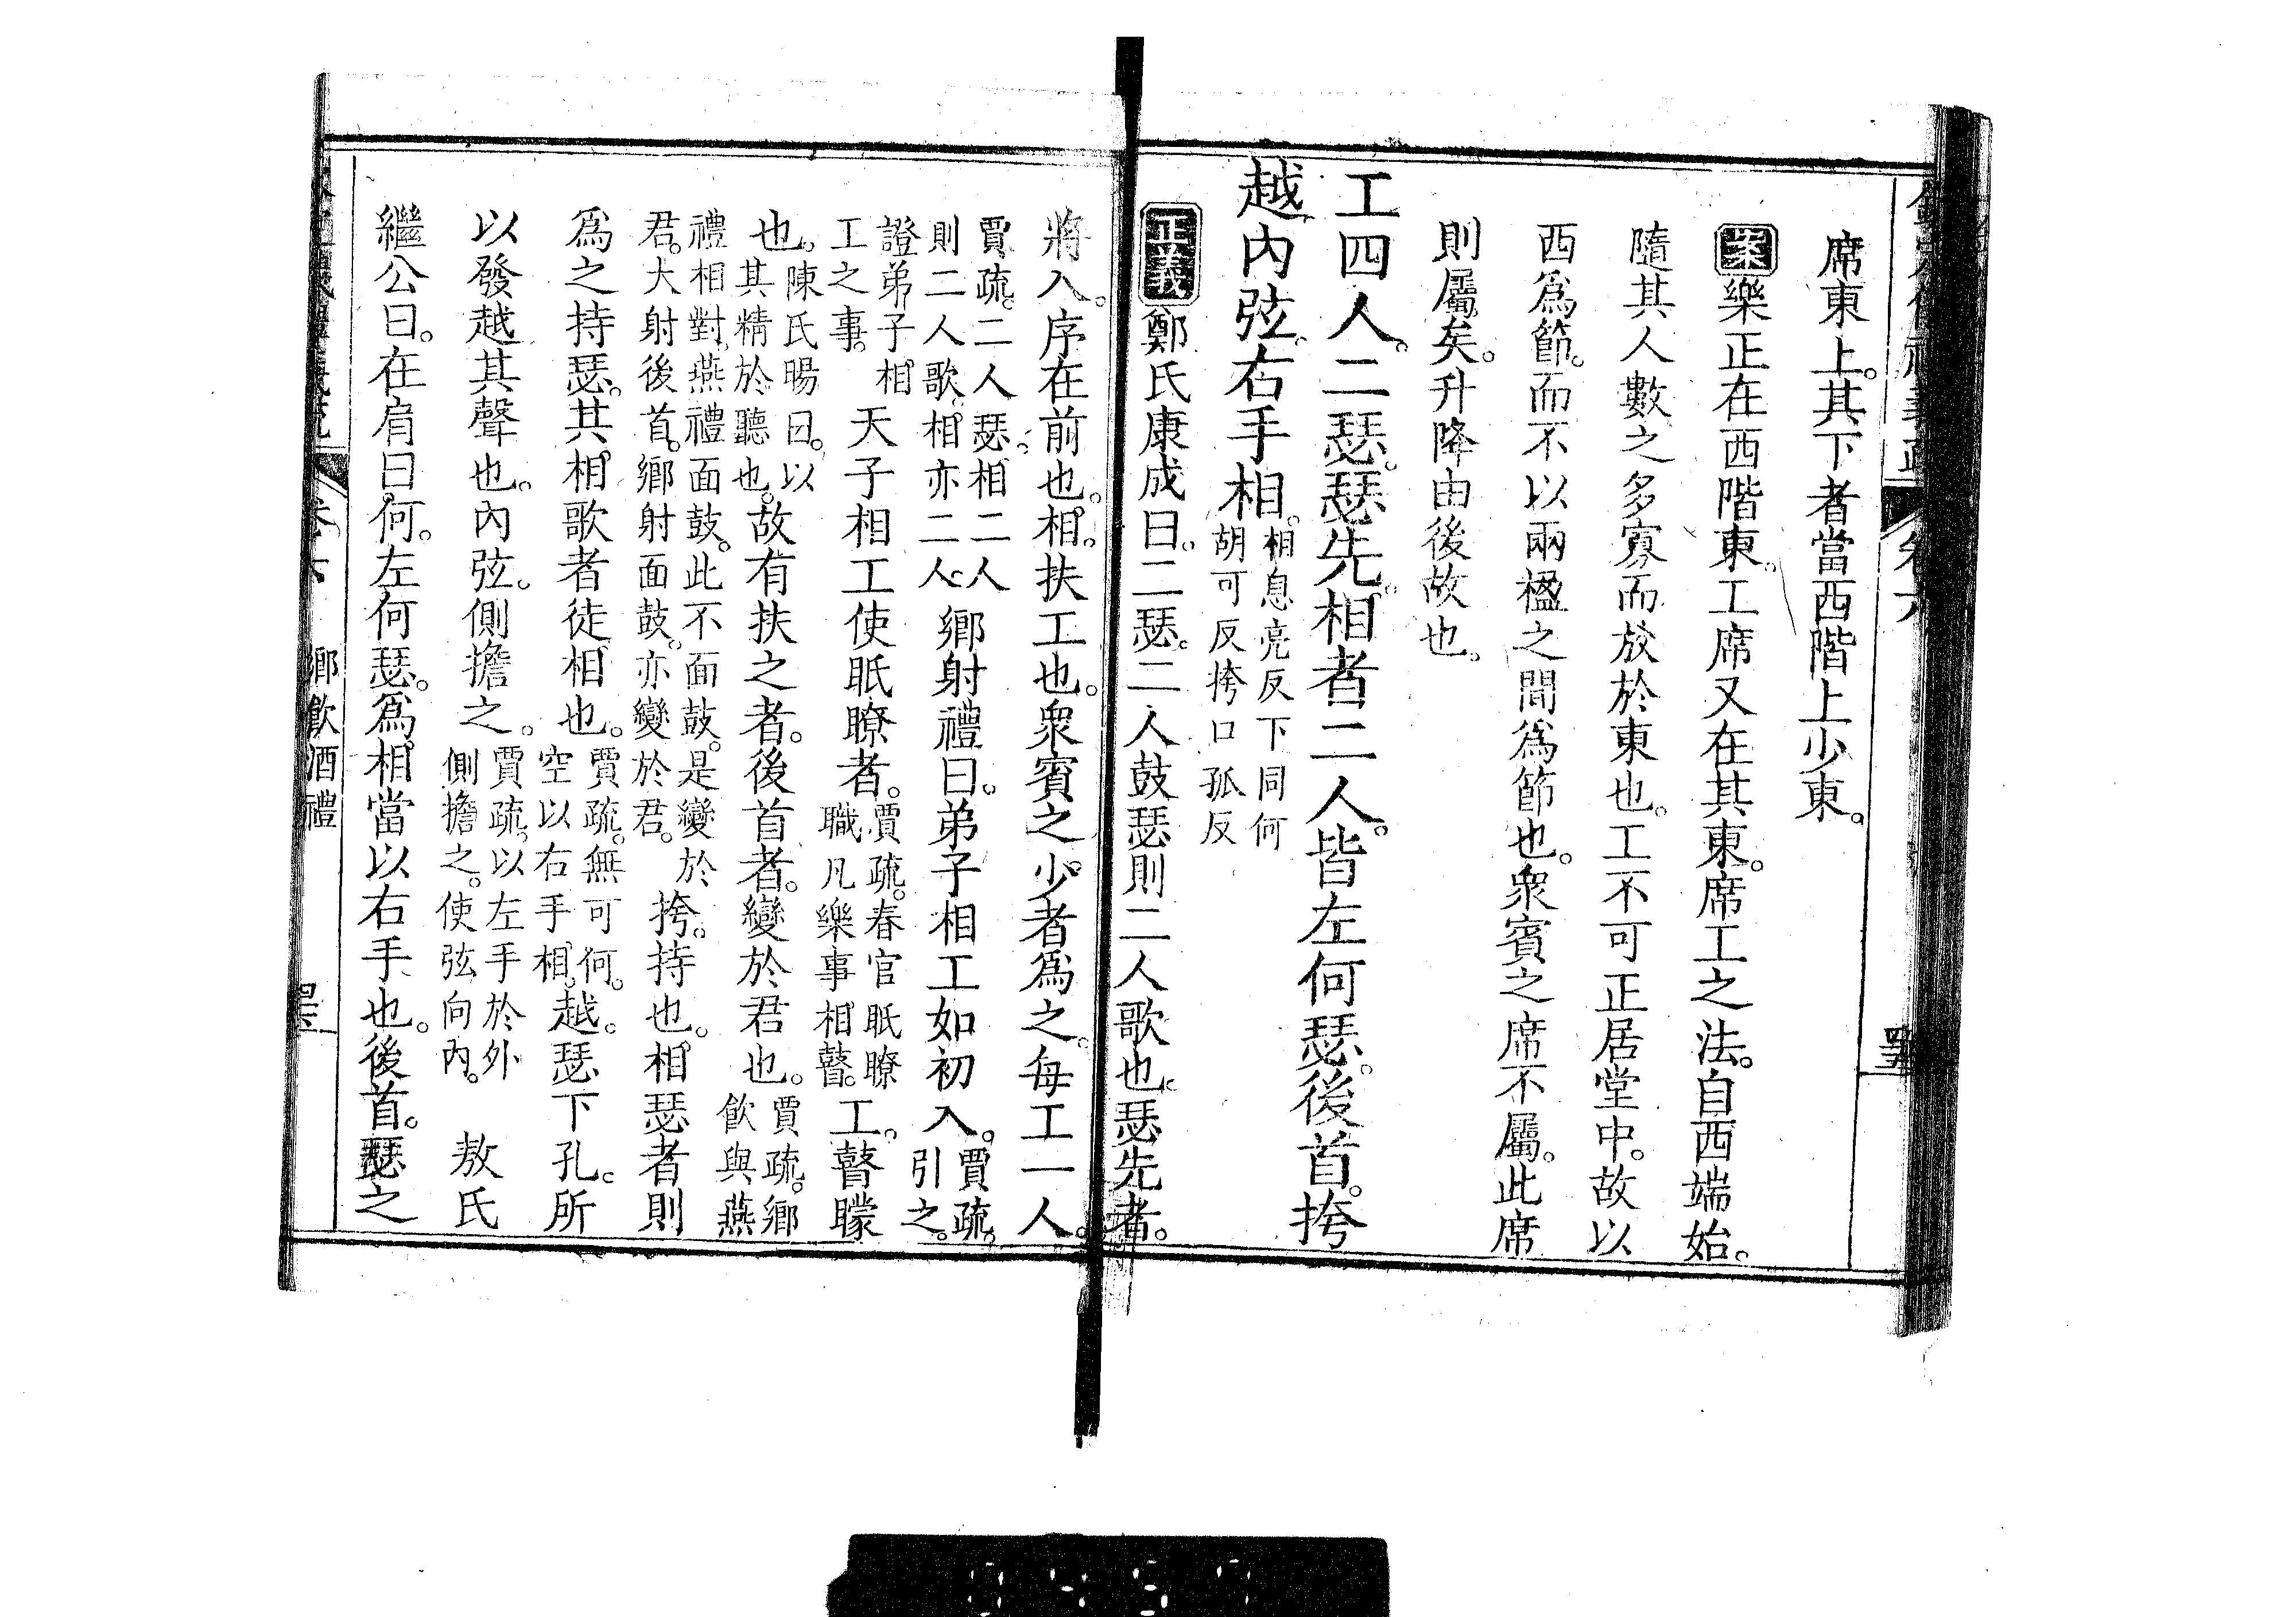 席東上。其下者當西階上少東。
案樂正在西階東。工席又在其東。席工之法。自西端始。
隨其人數之多寡而放於東也。工不可正居堂中。故以
西爲節。而不以兩楹之間爲節也。衆賓之席不屬。此席
則屬矣。升降由後故也。
工四人。二瑟。瑟先。相者二人。皆左何瑟。後首。挎
越。內弦。右手相。相息亮反下同何
胡可反挎口孤反
正義鄭氏康成曰。二瑟。二人鼓瑟則二人歌也。瑟先者。
將入。序在前也。相。扶工也。衆賓之少者爲之。每工一人。
賈疏。二人瑟。相二人
則二人歌。相亦二人。
鄉射禮曰。弟子相工如初入。
賈疏。
引之。
證弟子相
工之事。
天子相工使眡瞭者。
賈疏。春官眡瞭
職凡樂事相瞽。
工。瞽矇
也。
陳氏暘曰。以
其精於聽也。
故有扶之者。後首者。變於君也。
賈疏。鄉
飲與燕
禮相對。燕禮面鼓。此不面鼓。是變於
君。大射後首。鄉射面鼓。亦變於君。
挎。持也。相瑟者則
爲之持瑟。其相歌者徒相也。
賈疏。無可何。
空以右手相。
越。瑟下孔。所
以發越其聲也。內弦。側擔之。
賈疏。以左手於外
側擔之。使弦向內。
敖氏
繼公曰。在肩曰何。左何瑟。爲相當以右手也。後首。瑟之
卷六 鄉飲酒禮